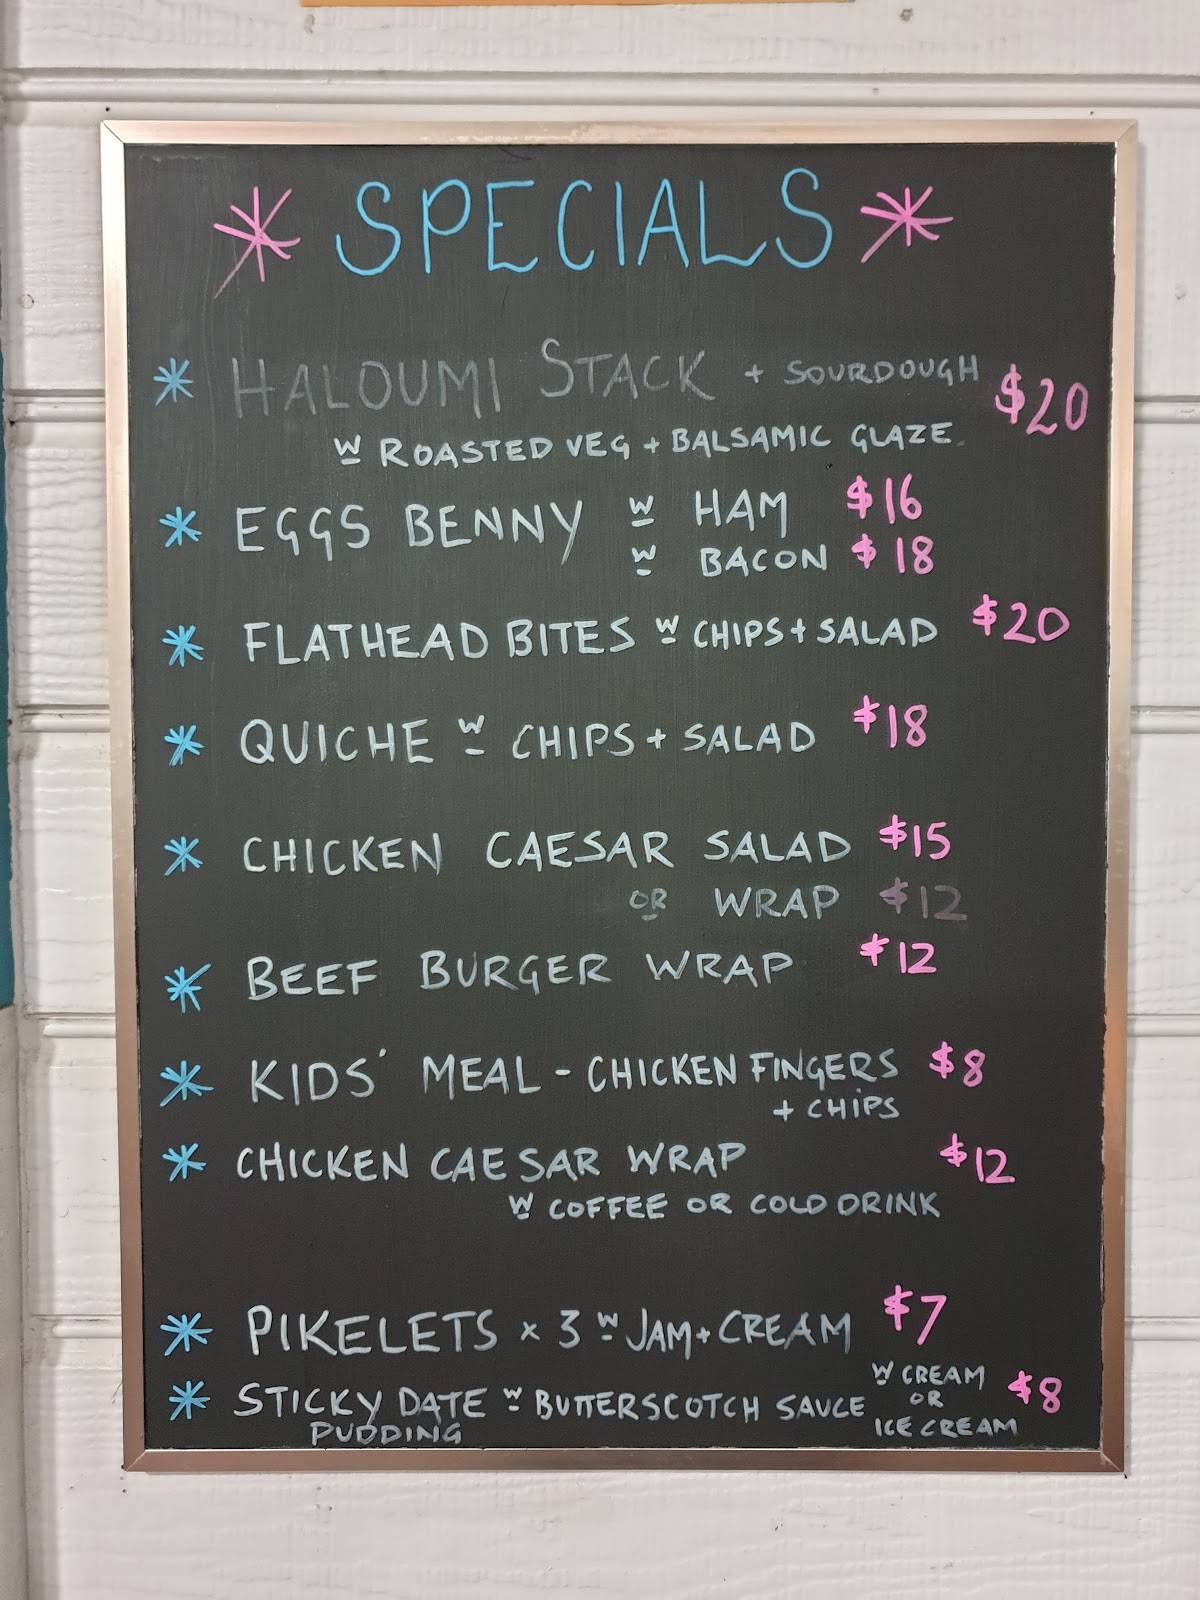 * SPECIALS *
* HALOUMI STACK + SOURDOUGH $20
W ROASTED VEG + BALSAMIC GLAZE
* EGGS BENNY W HAM $16
W BACON $18
* FLATHEAD BITES W CHIPS + SALAD $20
* QUICHE W CHIPS + SALAD $18
* CHICKEN CAESAR SALAD $15
OR WRAP $12
* BEEF BURGER WRAP $12
* KIDS' MEAL - CHICKEN FINGERS $8
+ CHIPS
* CHICKEN CAESAR WRAP $12
W COFFEE OR COLD DRINK
* PIKELETS x 3 W JAM + CREAM $7
* STICKY DATE W BUTTERSCOTCH SAUCE W CREAM $8
PUDDING OR
ICE CREAM